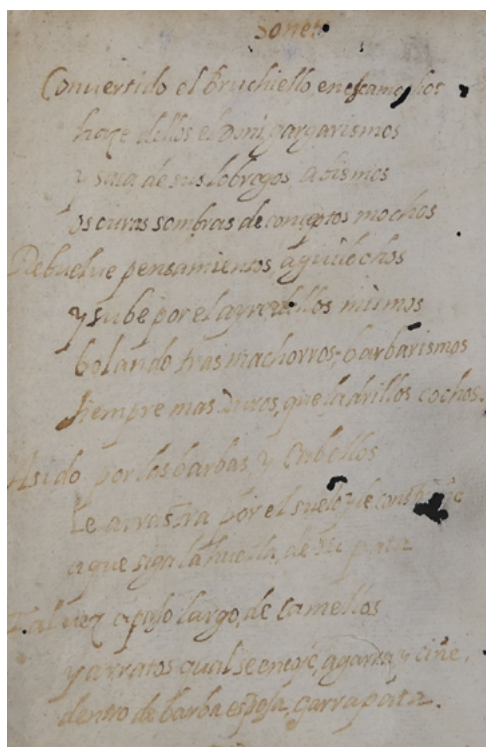 Soneto
Conuertido el Bruchiello, en escamochos
haze dellos el Doni gargarismos
y saca de sus lobregos abismos
oscuras sombras de conceptos mochos
Rebuelue pensamientos
y sube por el ayre dellos mismos
bolando tras machorros barbarismos
siempre mas duros, que ladrillos cochos.
Asido por las barbas y cabellos
Le arrastra por el suelo, le
a que siga la huella, de su pata
Tal vez a paso largo, de camellos
y arratos qual se encoje, agarra, y ciñe,
dentro de barba espesa, garrapata.